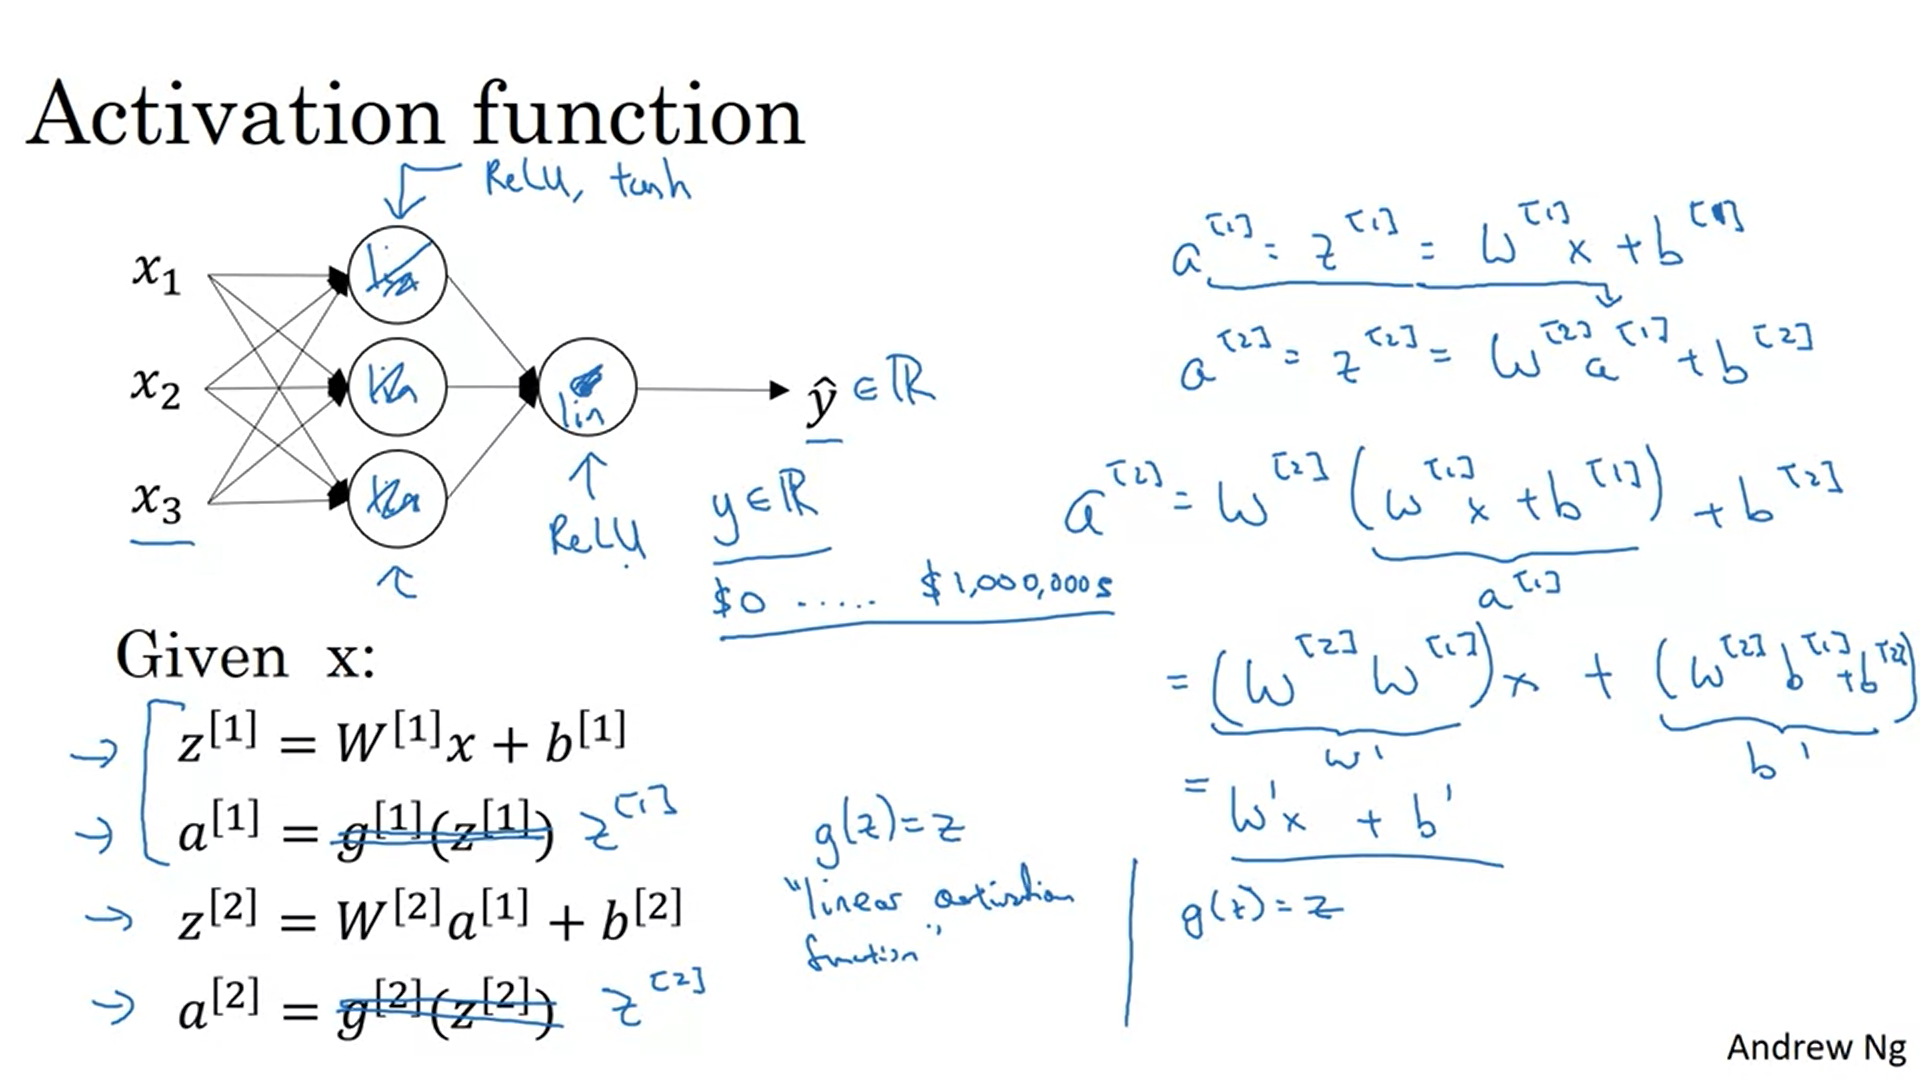 Activation function
ReLU, tanh
x₁
x₂
x₃
lin
ReLU
ŷ ∈ ℝ
y ∈ ℝ
$0 ..... $1,000,000s
Given x:
→ z^[1] = W^[1]x + b^[1]
→ a^[1] = g^[1](z^[1]) z^[1]
→ z^[2] = W^[2]a^[1] + b^[2]
→ a^[2] = g^[2](z^[2]) z^[2]
g(z) = z
"linear activation
function"
a^[1] = z^[1] = W^[1]x + b^[1]
a^[2] = z^[2] = W^[2]a^[1] + b^[2]
a^[2] = W^[2](W^[1]x + b^[1]) + b^[2]
a^[1]
= (W^[2]W^[1])x + (W^[2]b^[1] + b^[2])
W' b'
= W'x + b'
g(z) = z
Andrew Ng